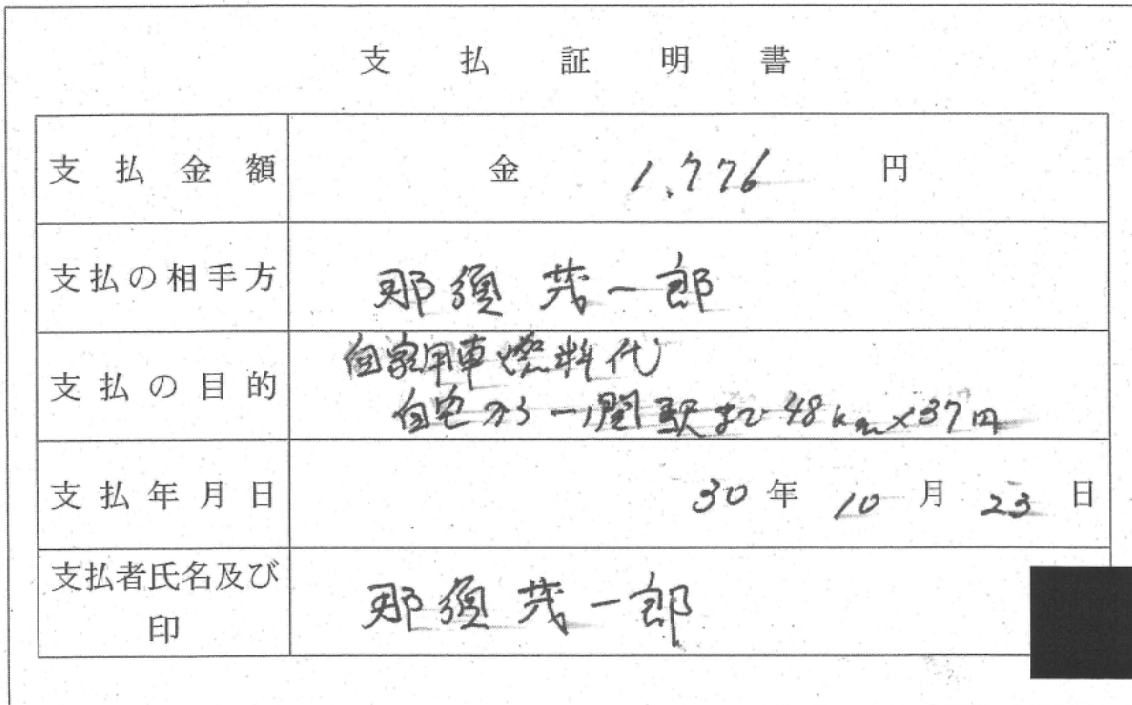 支払証明書
支払金額 金 1,776 円
支払の相手方 那須茂一郎
支払の目的 自家用車燃料代
自宅から一ノ関駅まで48km×37円
支払年月日 30年10月23日
支払者氏名及び印 那須茂一郎